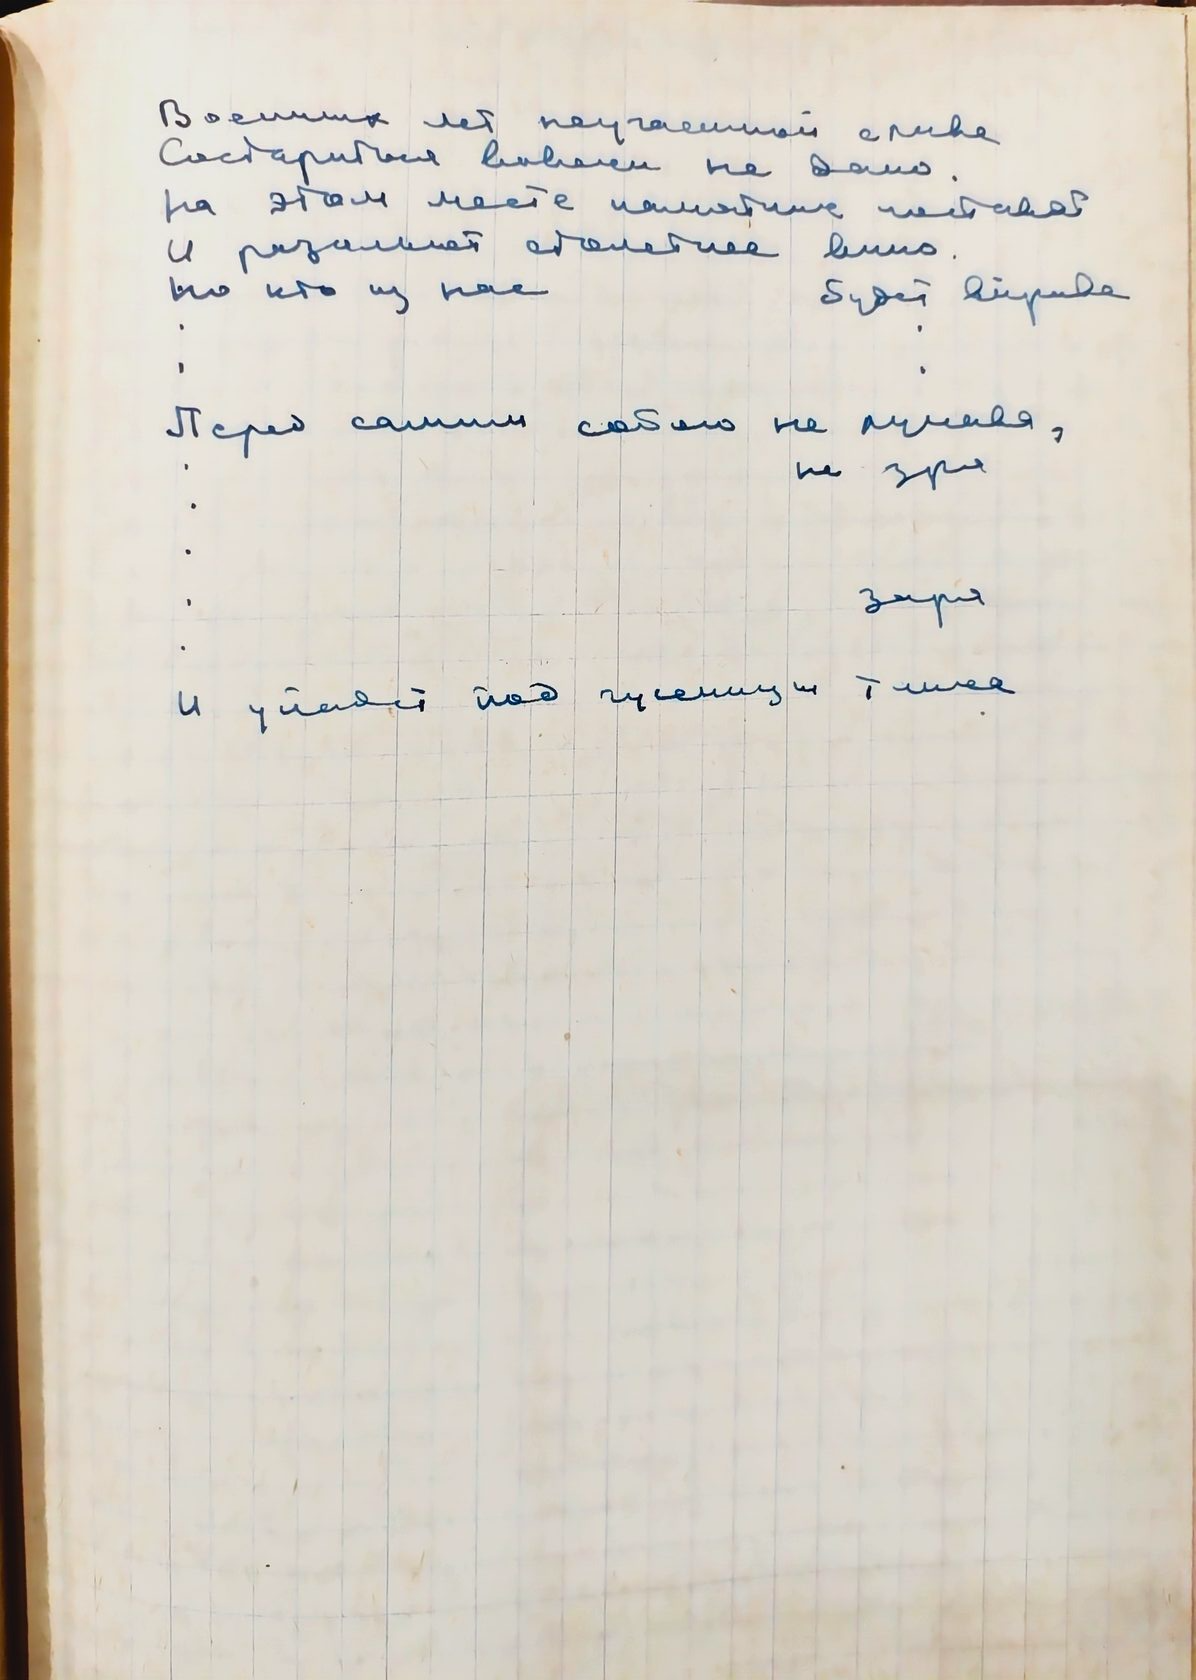 Военных лет неугасшей слава
Состариться вовеки не дано.
На этом месте памятник поставят
И разольют столетнее вино.
Но кто из нас будет вправе
:
:
Перед самим собою не лукавя,
не зря
заря
И упадёт под гусеницы танка